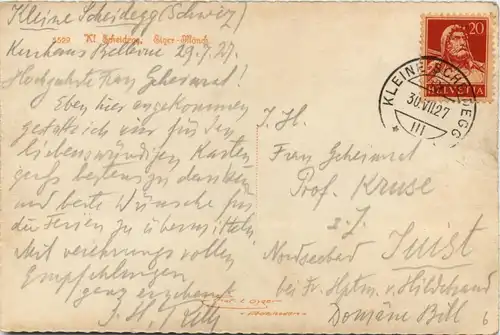 Kleine Scheidegg (Schweiz)
5529 Kl. Scheidegg. Eiger-Mönch
Kurhaus Bellevue 29.7.27.
Hochgeehrte Frau Geheimrat!
Eben hier angekommen
gestatte ich mir für den
liebenswürdigen Karten
gruß bestens zu danken
und beste Wünsche für
die Ferien zu übermitteln
Mit verehrungsvollen
Empfehlungen
ganz ergebenst
20
HELVETIA
KLEINE SCHEIDEGG
30.VII.27
III
I. H.
Frau Geheimrat
Prof. Kruse
z. Z.
Nordseebad Juist
bei Fr. Hptm. v. Hildebrand
Domäne Bill
6